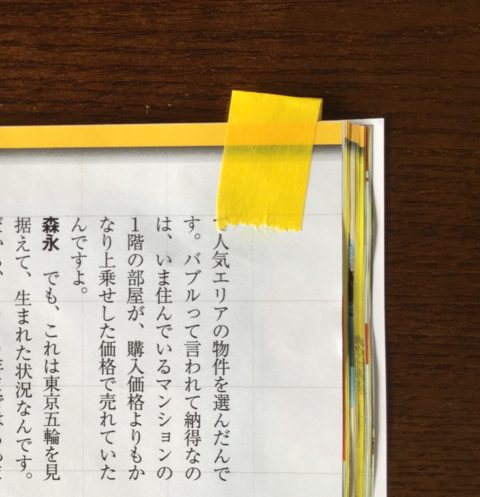 で人気エリアの物件を選んだんで
す。バブルって言われて納得なの
は、いま住んでいるマンションの
1階の部屋が、購入価格よりもか
なり上乗せした価格で売れていた
んですよ。
森永　でも、これは東京五輪を見
据えて、生まれた状況なんです。